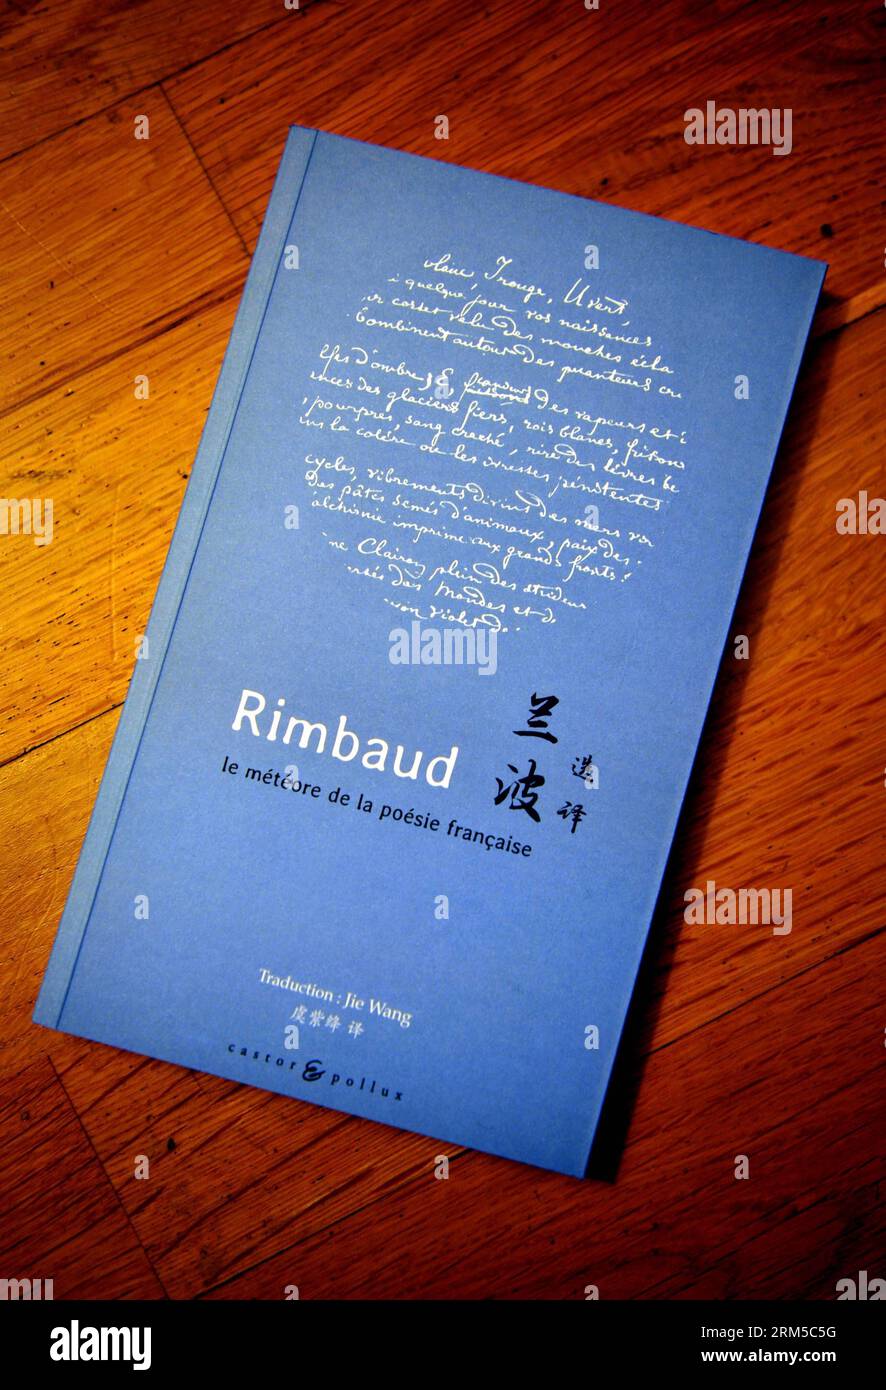 olaire I rouge, U vert,
i quelque jour vos naissances
ir corset velu des mouches écla
bombinent autour des puanteurs cru
lfes d'ombre; E, frissons des vapeurs et
ances des glaciers fiers, rois blancs, frissons
, pourpres, sang craché, rire des lèvres be
ns la colère ou les ivresses pénitentes
cycles, vibrements divins des mers vir
Des pâtis semés d'animaux, paix des
alchimie imprime aux grands fronts
ne Clairon plein des strideur
rsés des Mondes et d
yon violet de
Rimbaud
le météore de la poésie française
兰波
选译
Traduction : Jie Wang
虞紫绛 译
castor & pollux
alamy
Image ID: RM5C5G
www.alamy.com